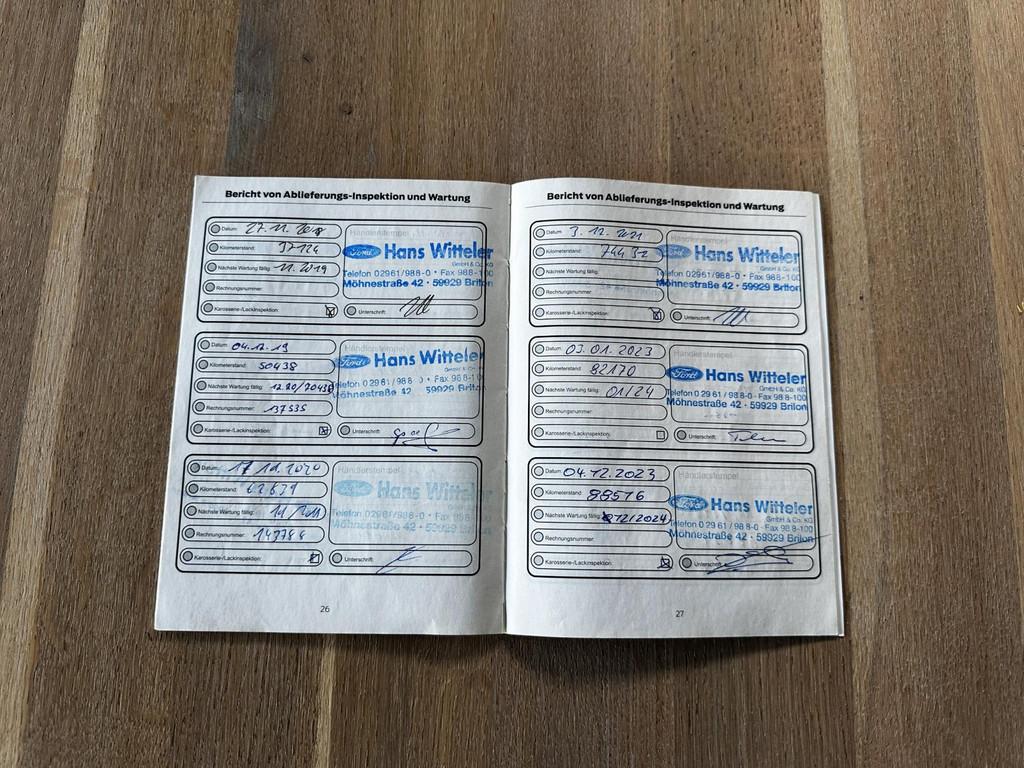 Bericht von Ablieferungs-Inspektion und Wartung
Datum: 27.11.2018
Kilometerstand: 37124
Nächste Wartung fällig: 11.2019
Rechnungsnummer:
Karosserie-/Lackinspektion:
Händlerstempel
Ford Hans Witteler
GmbH & Co. KG
Telefon 02961/988-0 • Fax 988-100
Möhnestraße 42 · 59929 Brilon
Unterschrift:
Datum: 04.12.19
Kilometerstand: 50438
Nächste Wartung fällig: 12.20/70438
Rechnungsnummer: 137535
Karosserie-/Lackinspektion:
Händlerstempel
Ford Hans Witteler
GmbH & Co. KG
Telefon 02961/988-0 • Fax 988-100
Möhnestraße 42 59929 Brilon
Unterschrift:
Datum:
Kilometerstand:
Nächste Wartung fällig:
Rechnungsnummer:
Karosserie-/Lackinspektion:
Händlerstempel
Ford Hans Witteler
Telefon 02961/988-0 • Fax 988-100
Möhnestraße 42 · 59929 Brilon
Unterschrift:
26
Bericht von Ablieferungs-Inspektion und Wartung
Datum: 3.12.2021
Kilometerstand:
Nächste Wartung fällig:
Rechnungsnummer:
Karosserie-/Lackinspektion:
Händlerstempel
Ford Hans Witteler
GmbH & Co. KG
Telefon 02961/988-0 • Fax 988-100
Möhnestraße 42 · 59929 Brilon
Unterschrift:
Datum: 03.01.2023
Kilometerstand: 82170
Nächste Wartung fällig: 01/24
Rechnungsnummer:
Karosserie-/Lackinspektion:
Händlerstempel
Ford Hans Witteler
GmbH & Co. KG
Telefon 0 29 61 / 98 8-0 · Fax 98 8-100
Möhnestraße 42 · 59929 Brilon
Unterschrift:
Datum: 04.12.2023
Kilometerstand: 88516
Nächste Wartung fällig: 12/2024
Rechnungsnummer:
Karosserie-/Lackinspektion:
Händlerstempel
Ford Hans Witteler
GmbH & Co. KG
Telefon 0 29 61 / 98 8-0 · Fax 98 8-100
Möhnestraße 42 · 59929 Brilon
Unterschrift:
27